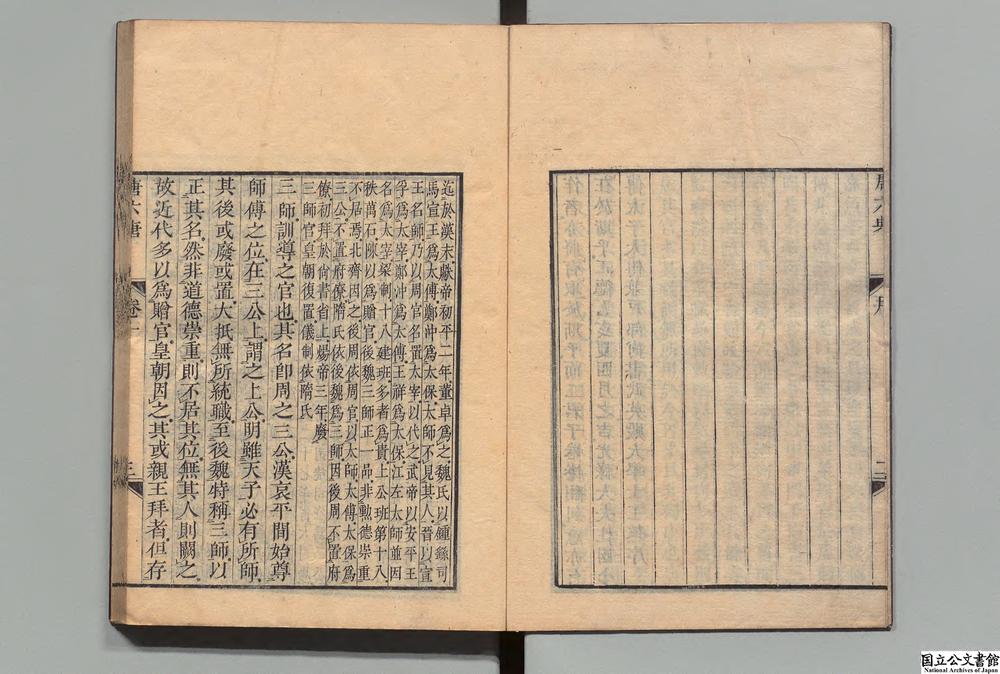 唐六典
序
二
迄於漢末獻帝初平二年董卓爲之魏氏以鍾繇司
馬宣王爲太傅鄭沖爲太保太師不見其人晉以宣
王名師乃以周官名置太宰以代之武帝以安平王
孚爲太宰鄭沖爲太傅王祥爲太保江左太師並因
名爲太宰梁制十八建班多者爲貴上公班第十八
秩萬石陳以爲贈官後魏三師正一品非勳德崇重
不居焉北齊因之後周依周官以太師太傅太保爲
三公不置府僚隋氏依後魏爲三師因後周不置府
僚初拜於尙書省上煬帝三年廢
三師官皇朝復置儀制依隋氏
三師訓導之官也其名卽周之三公漢哀平間始尊
師傅之位在三公上謂之上公明雖天子必有所師
其後或廢或置大抵無所統職至後魏特稱三師以
正其名然非道德崇重則不居其位無其人則闕之
故近代多以爲贈官皇朝因之其或親王拜者但存
唐六唐
卷一
三
国立公文書館
National Archives of Japan